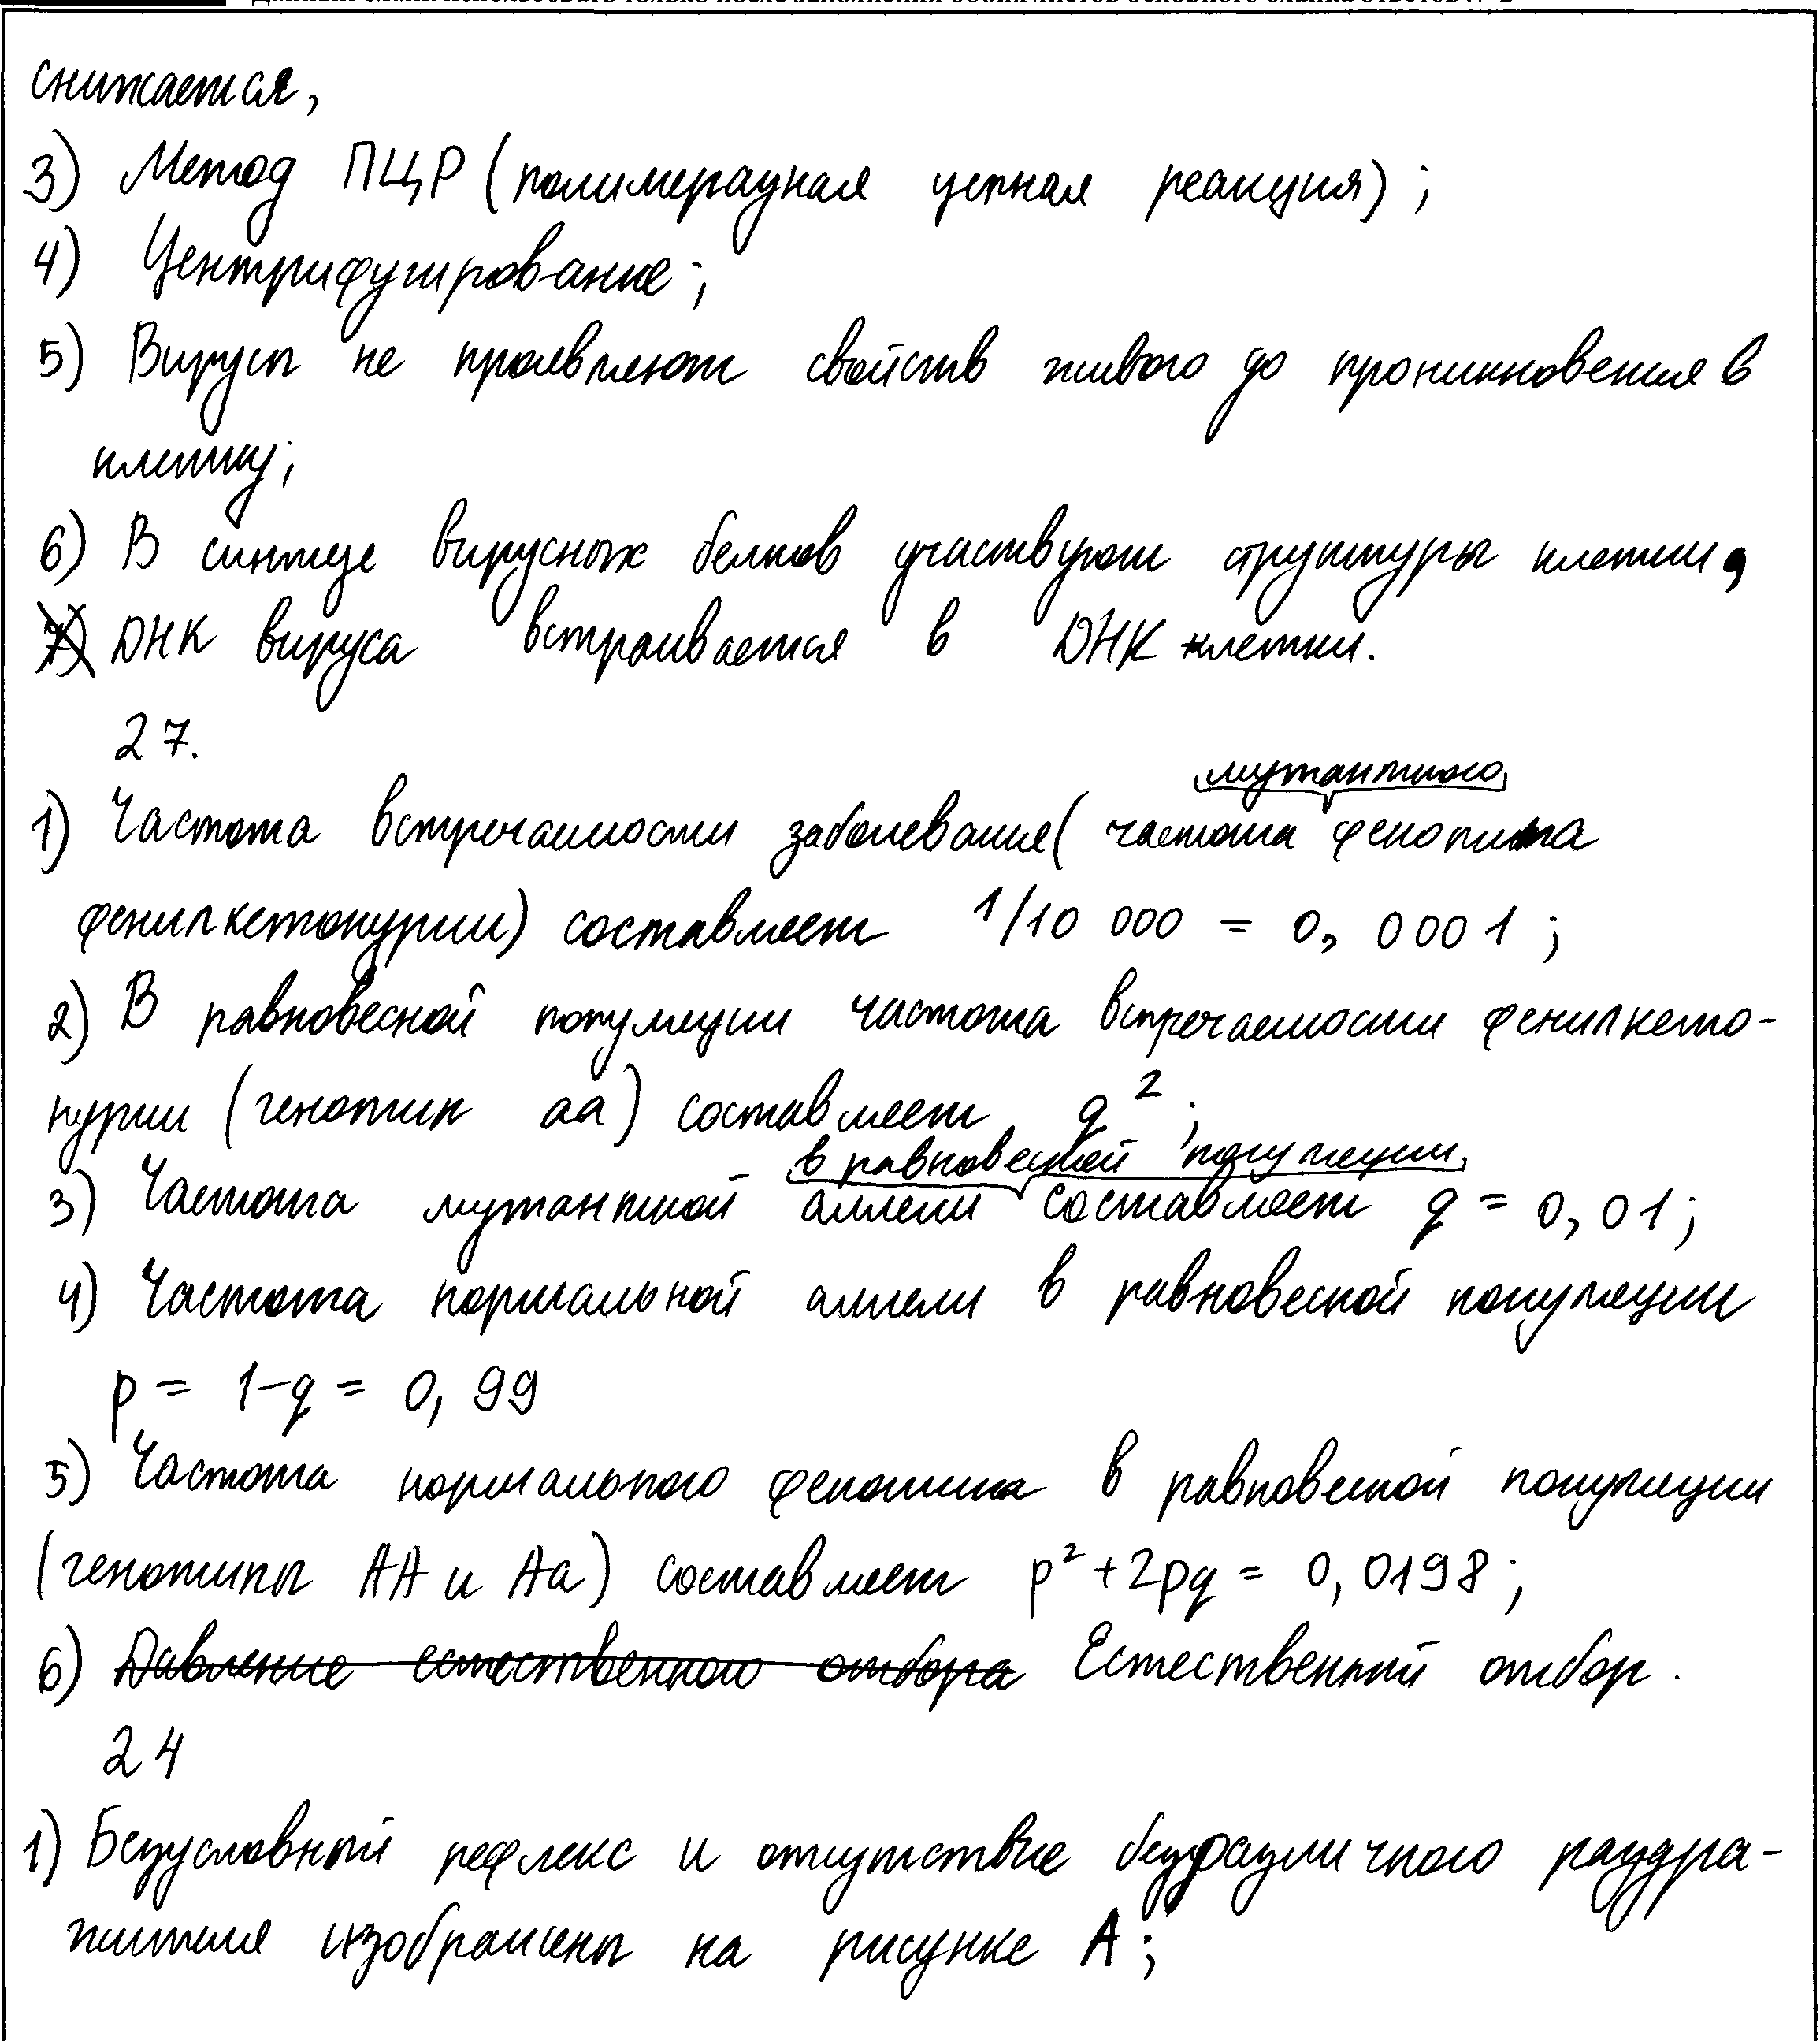 снижается,
3) Метод ПЦР (полимеразная цепная реакция);
4) Центрифугирование;
5) Вирусы не проявляют свойств живого до проникновения в
клетку;
6) В синтезе вирусных белков участвуют структуры клетки,
ДНК вируса встраивается в ДНК клетки.
27.
мутантного
1) Частота встречаемости заболевания (частота фенотипа
фенилкетонурии) составляет 1/10 000 = 0,0001;
2) В равновесной популяции частота встречаемости фенилкето-
нурии (генотип aa) составляет q²;
в равновесной популяции
3) Частота мутантной аллели составляет q = 0,01;
4) Частота нормальной аллели в равновесной популяции
p = 1-q = 0,99
5) Частота нормального фенотипа в равновесной популяции
(генотипы AA и Aa) составляет p²+2pq = 0,0198;
6) Давление естественного отбора Естественный отбор.
24
1) Безусловный рефлекс и отсутствие безразличного раздра-
жителя изображены на рисунке А;